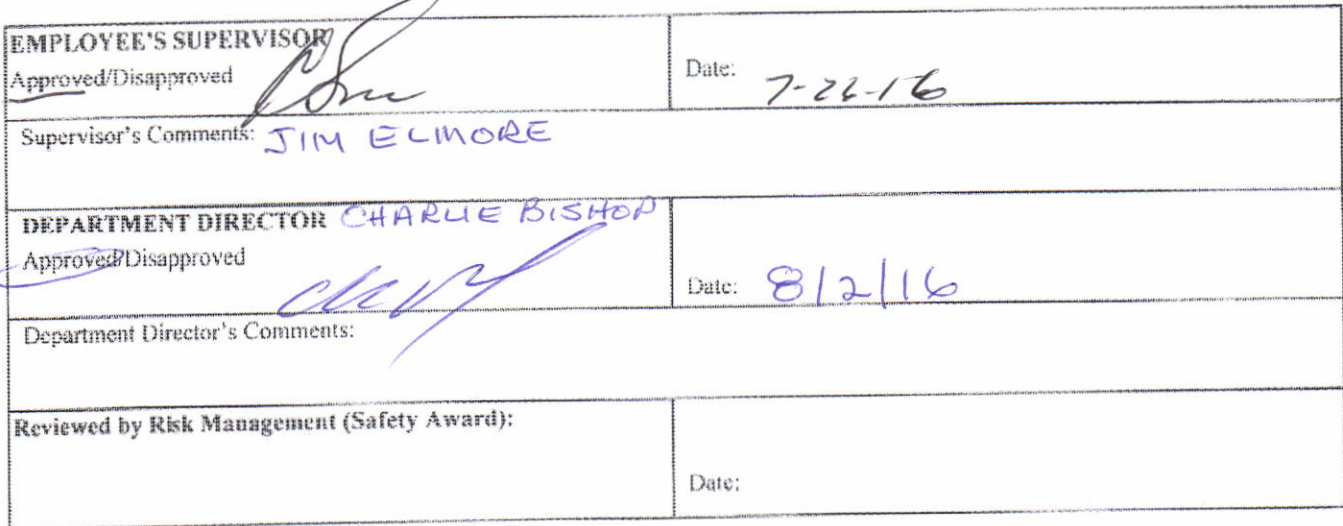 EMPLOYEE'S SUPERVISOR
Approved/Disapproved
Date: 7-26-16
Supervisor's Comments: JIM ELMORE
DEPARTMENT DIRECTOR CHARLIE BISHOP
Approved/Disapproved
Date: 8/2/16
Department Director's Comments:
Reviewed by Risk Management (Safety Award):
Date: